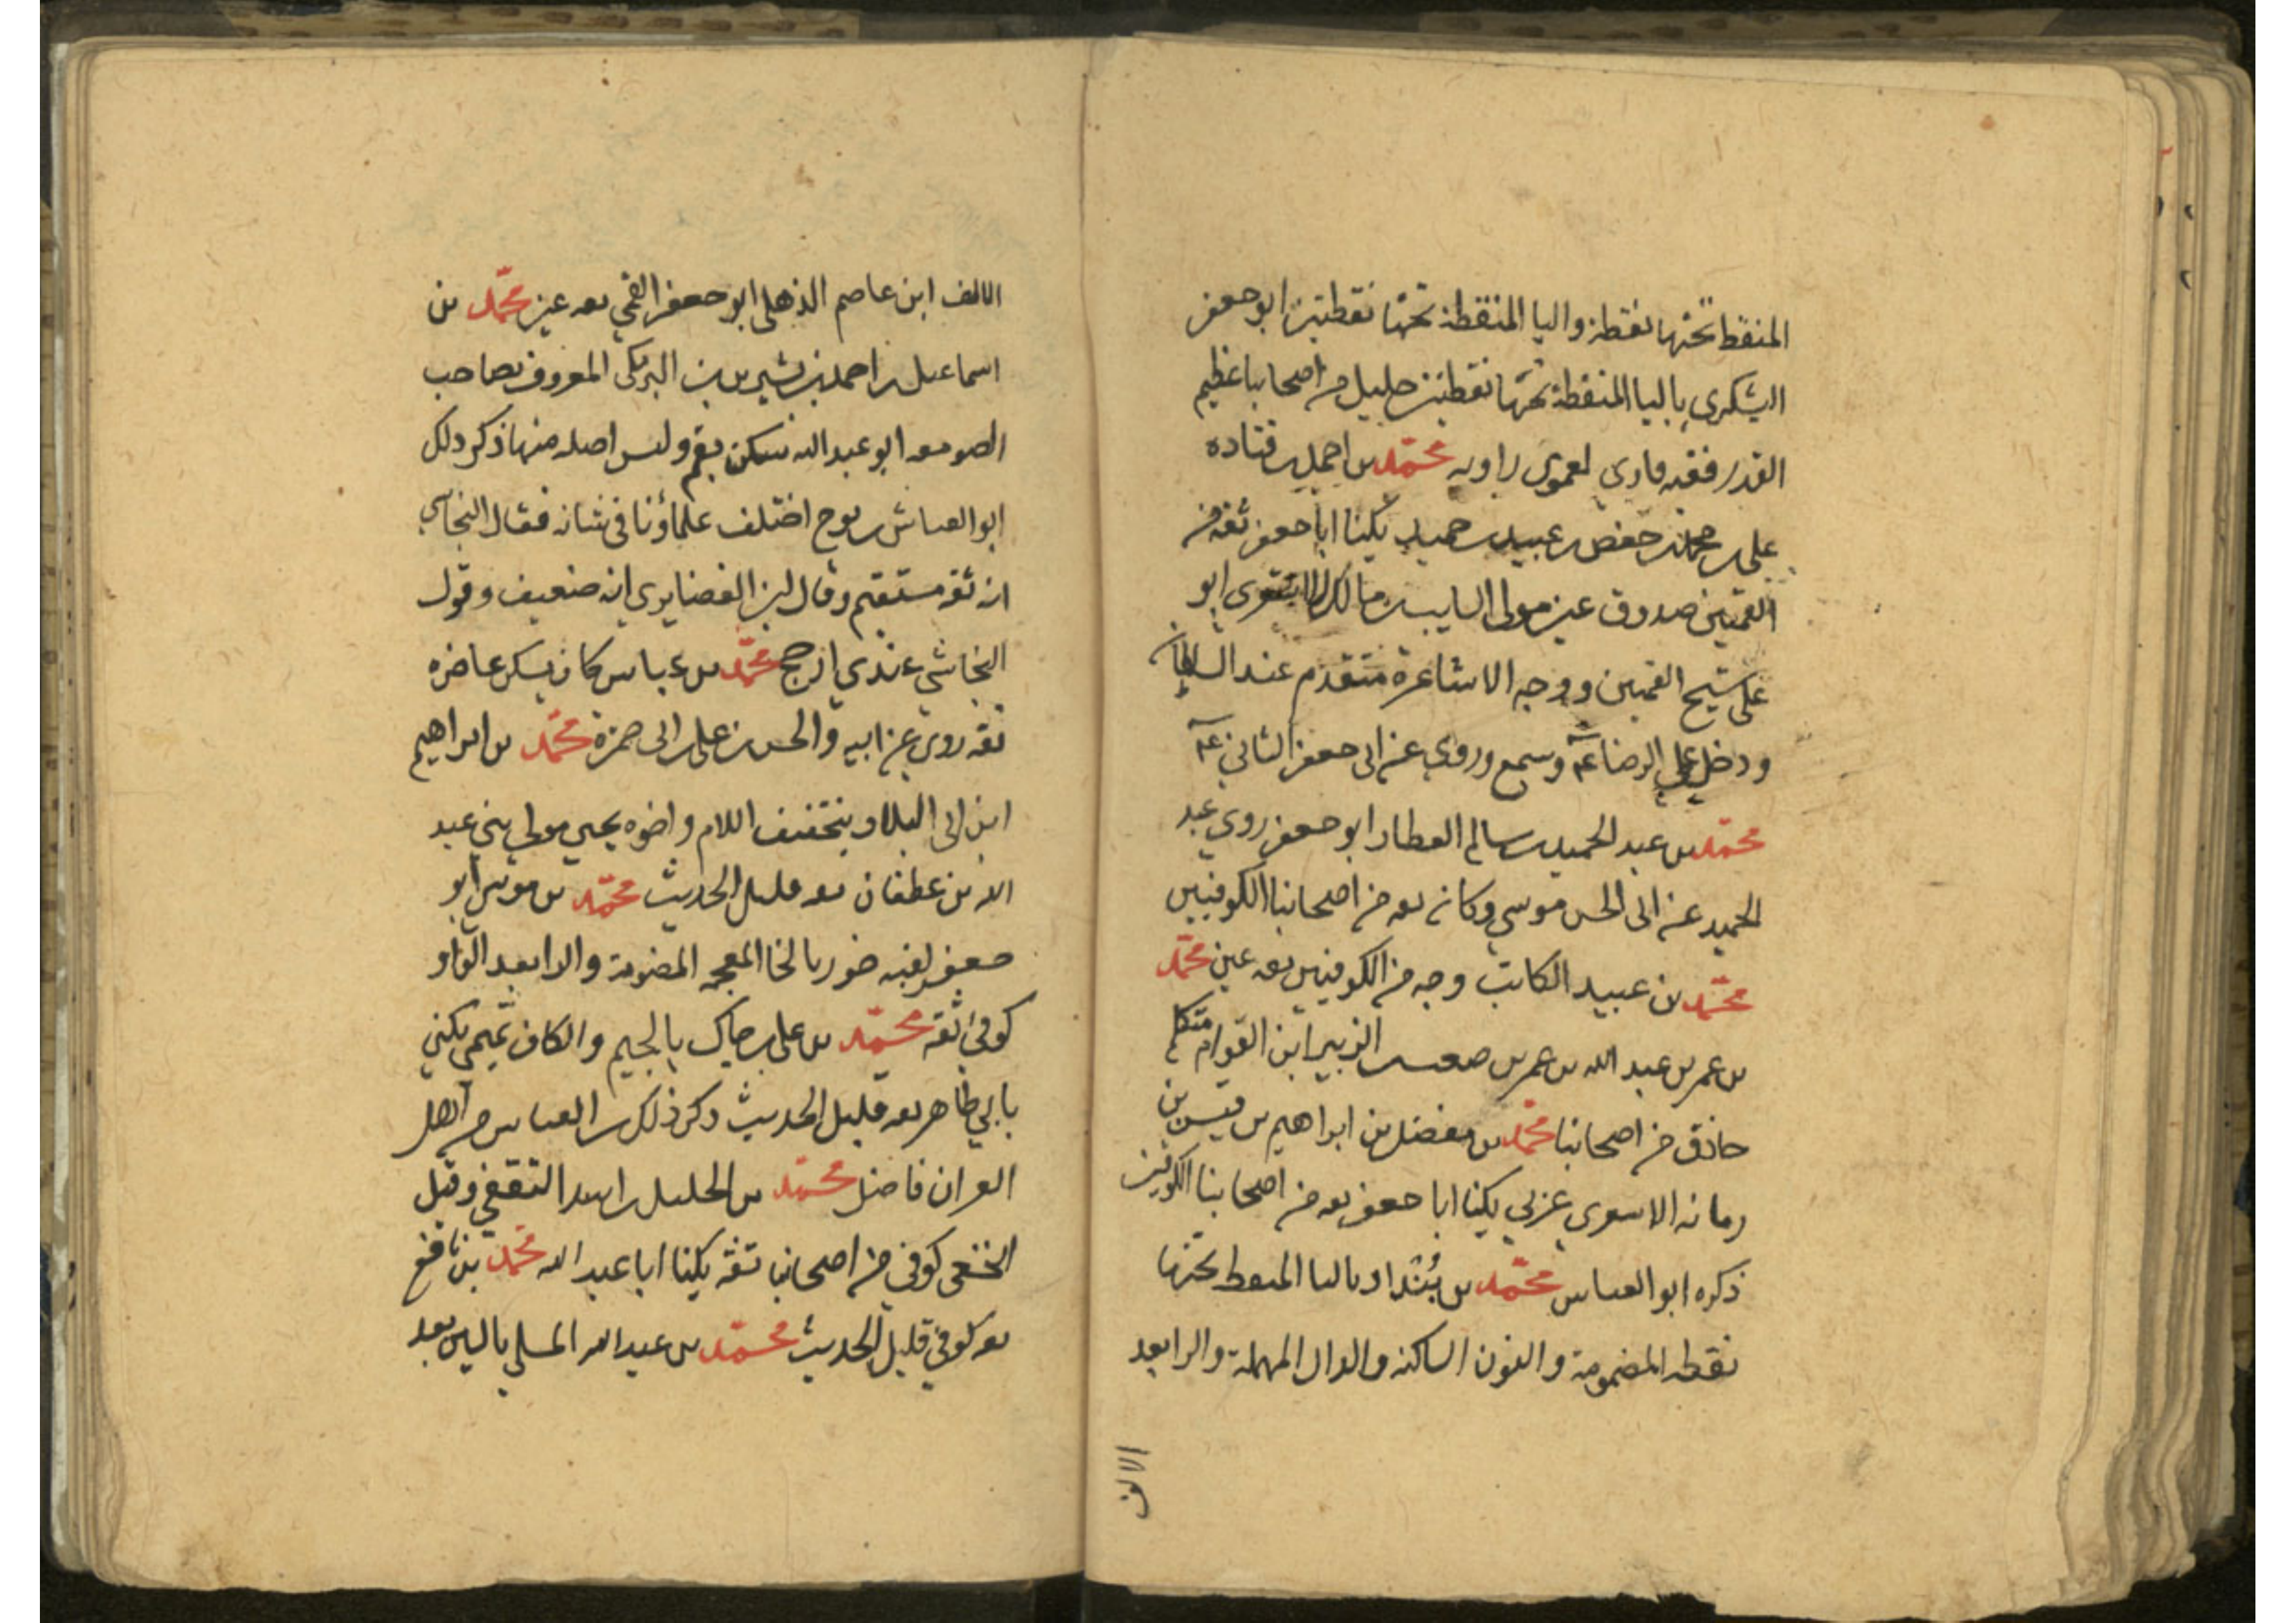 المنقط تحتها نقطة والياء المنقطة تحتها نقطتين ابو جعفر
اليشكري باليا المنقطة تحتها نقطتين جليل من اصحابنا عظيم
القدر فقيه قاري لغوي راويه محمد بن احمد بن قتاده
على بن محمد بن حفص بن عبيد بن حميد يكنا ابا جعفر ثقه من
القميين صدوق عين مولى السايب بن مالك الاشعري ابو
على شيخ القميين ووجه الاشاعرة متقدم عند السلطان
ودخل على الرضا عٓ وسمع وروي عن ابى جعفر الثاني عٓ
محمد بن عبد الحميد بن سالم العطار ابو جعفر روي عبد
الحميد عن ابى الحسن موسي وكان ثقه من اصحابنا الكوفيين
محمد بن عبيد الكاتب وجه من الكوفيين ثقه عين محمد
بن عمر بن عبد الله بن عمر بن مصعب الزبير ابن القوام متكلم
حاذق من اصحابنا محمد بن مفضل بن ابراهيم بن قيس بن
رمانه الاسعري عربي يكنا ابا جعفر ثقه من اصحابنا الكوفيين
ذكره ابو العباس محمد بن بُنْدار بالبا المنقط تحتها
نقطه المضمومة والنون الساكنه والدال المهملة والرا بعد
الالف
الالف ابن عاصم الذهلى ابو جعفر القمي ثقه عين محمد بن
اسماعيل بن احمد بن بشير بن البرمكى المعروف بصاحب
الصومعه ابو عبد الله سكن بقم وليس اصله منها ذكر ذلك
ابو العباس بن نوح اختلف علماؤنا في شانه فقال النجاشي
انه ثقه مستقيم وقال ابن الغضايري انه ضعيف وقول
النجاشي عندي ارجح محمد بن عباس كان يسكن عاضره
ثقه روي عن ابيه والحسن بن على بن ابى حمزة محمد بن ابراهيم
ابن ابى البلاد بتخفيف اللام واخوه يحيي مولى بني عبد
الله بن غطفان ثقه قليل الحديث محمد بن موسى ابو
جعفر لقبه خورا بالخا المعجمه المضمومة والرا بعد الواو
كوفي ثقه محمد بن على بن جاك بالجيم والكاف تميمي يكنى
بابي طاهر ثقه قليل الحديث ذكر ذلك بن العباس من اهل
القران فاضل محمد بن الخليل بن اسد الثقفي وقيل
النخعى كوفي من اصحابنا ثقه يكنا ابا عبد الله محمد بن نافع
ثقه كوفي قليل الحديث محمد بن عبد الله المسلي بالسين بعد